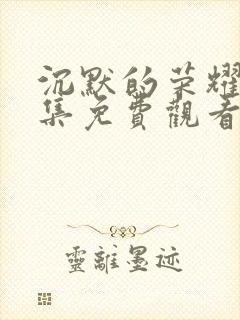 沉默的荣耀
集免費觀看
靈離墨迹